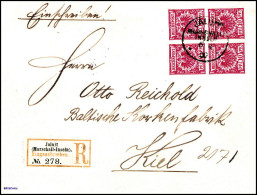 Einschreiben!
Herrn
Otto Reichold
Baltische Korkenfabrik
Kiel
2071
Jaluit
(Marschall-Inseln).
Eingeschrieben
R
№ 278.